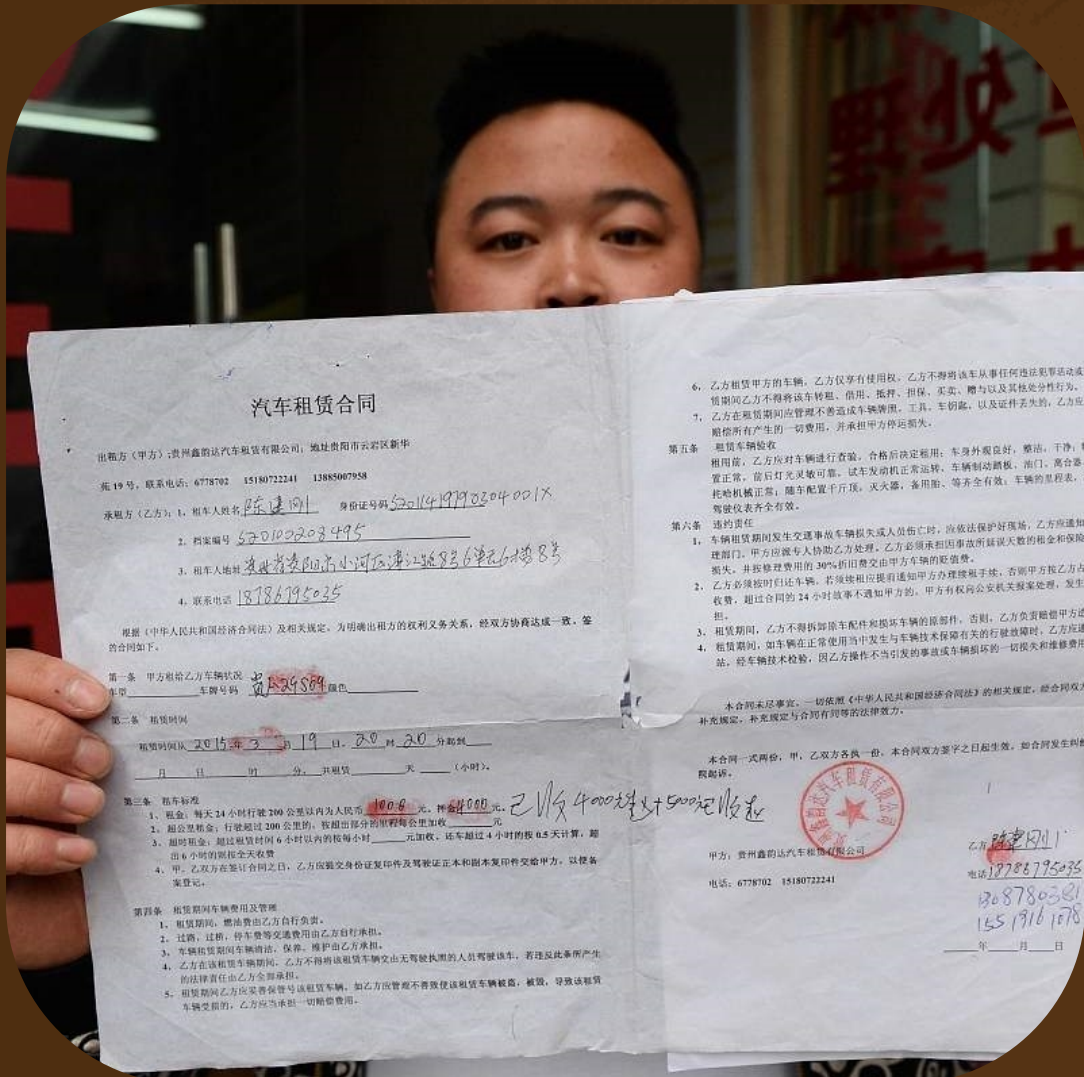 处理
汽车租赁合同
出租方（甲方）:贵州鑫韵达汽车租赁有限公司；地址贵阳市云岩区新华
苑 19 号，联系电话：6778702 15180722241 13885007958
承租方（乙方）：1、租车人姓名 陈建刚 身份证号码
2、档案编号 520100208495
3、租车人地址 贵州省贵阳市小河区漓江路8号6单元6楼8号
4、联系电话 18786795035
根据《中华人民共和国经济合同法》及相关规定，为明确出租方的权利义务关系，经双方协商达成一致，签
的合同如下。
第一条 甲方租给乙方车辆状况
车型 车牌号码 颜色
第二条 租赁时间
租赁时间从 2015 年 3 月 19 日，20 时 20 分起到
月 日 时 分，共租赁 天 （小时）。
第三条 租车标准
1、租金：每天 24 小时行驶 200 公里以内为人民币 100.0 元，押金 4000 元。已收4000元 5000元
2、超公里租金：行驶超过 200 公里的，按超出部分的里程每公里加收 元
3、超时租金：超过租赁时间 6 小时以内的按每小时 元加收，还车超过 4 小时的按 0.5 天计算，超
出 6 小时的则按全天收费
4、甲、乙双方在签订合同之日，乙方应骗交身份证复印件及驾驶证正本和副本复印件交给甲方，以便备
案登记。
第四条 租赁期间车辆费用及管理
1、租赁期间，燃油费由乙方自行负责。
2、过路、过桥、停车费等交通费用由乙方自行承担。
3、车辆租赁期间车辆清洁、保养、维护由乙方承担。
4、乙方在该租赁车辆期间，乙方不得将该租赁车辆交由无驾驶执照的人员驾驶该车，若违反此条所产生
的法律责任由乙方全部承担。
5、租赁期间乙方应妥善保管号该租赁车辆，如乙方应管理不善致使该租赁车辆被盗，被毁，导致该租赁
车辆受损的，乙方应当承担一切赔偿费用。
6、乙方租赁甲方的车辆，乙方仅享有使用权，乙方不得将该车从事任何违法犯罪活动或
赁期间乙方不得将该车转租、借用、抵押、担保、买卖、赠与以及其他处分性行为。
7、乙方在租赁期间应管理不善造成车辆牌照，工具，车钥匙，以及证件丢失的，乙方应
赔偿所有产生的一切费用，并承担甲方停运损失。
第五条 租赁车辆验收
租用前，乙方应对车辆进行查验，合格后决定租用：车身外观良好，整洁，干净；
置正常，前后灯光灵敏可靠，试车发动机正常运转、车辆制动踏板、油门、离合器
托哈机械正常；随车配置千斤顶，灭火器，备用胎、等齐全有效；车辆的里程表，
驾驶仪表齐全有效。
第六条 违约责任
1、车辆租赁期间发生交通事故车辆损失或人员伤亡时，应依法保护好现场，乙方应通知
理部门，甲方应派专人协助乙方处理。乙方必须承担因事故所延误天数的租金和保险
损失，并按修理费用的 30%折旧费交由甲方车辆的贬值费。
2、乙方必须按时归还车辆，若须续租应提前通知甲方办理续租手续，否则甲方按乙方占
收费，超过合同的 24 小时故事不通知甲方的，甲方有权向公安机关报案处理，发生
担。
3、租赁期间，乙方不得拆卸原车配件和损坏车辆的原部件，否则，乙方负责赔偿甲方
4、租赁期间，如车辆在正常使用当中发生与车辆技术保障有关的行驶故障时，乙方应通
站，经车辆技术检验，因乙方操作不当引发的事故或车辆损坏的一切损失和维修费用
本合同未尽事宜，一切依照《中华人民共和国经济合同法》的相关规定，经合同双方
补充规定，补充规定与合同有同等的法律效力。
本合同一式两份，甲、乙双方各执一份，本合同双方签字之日起生效，如合同发生纠纷
院起诉。
甲方：贵州鑫韵达汽车租赁有限公司
电话：6778702 15180722241
乙方 陈建刚
电话 18786795035
年 月 日